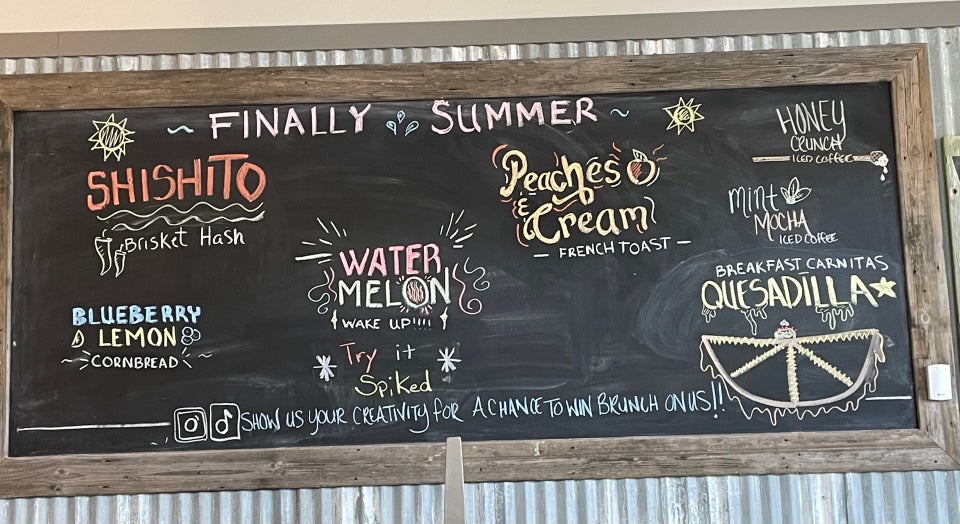 FINALLY SUMMER
SHISHITO
Brisket Hash
BLUEBERRY
LEMON
CORNBREAD
WATER
MELON
WAKE UP!!!!
Try it
Spiked
Peaches
& Cream
FRENCH TOAST
HONEY
CRUNCH
ICED COFFEE
mint
MOCHA
ICED COFFEE
BREAKFAST CARNITAS
QUESADILLA
SHOW US YOUR CREATIVITY FOR A CHANCE TO WIN BRUNCH ON US!!